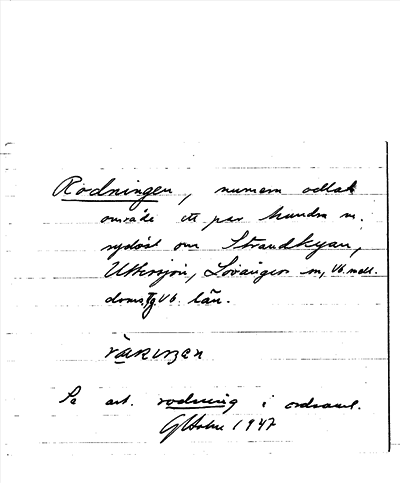 Rodningen, numera odlat
område ett par hundra m.
sydöst om Strandkyan,
Uttersjön, Lövångers sn, Vb. 
doms. Vb. län.
Se art. rodning i ordsaml.
GHolm 1947